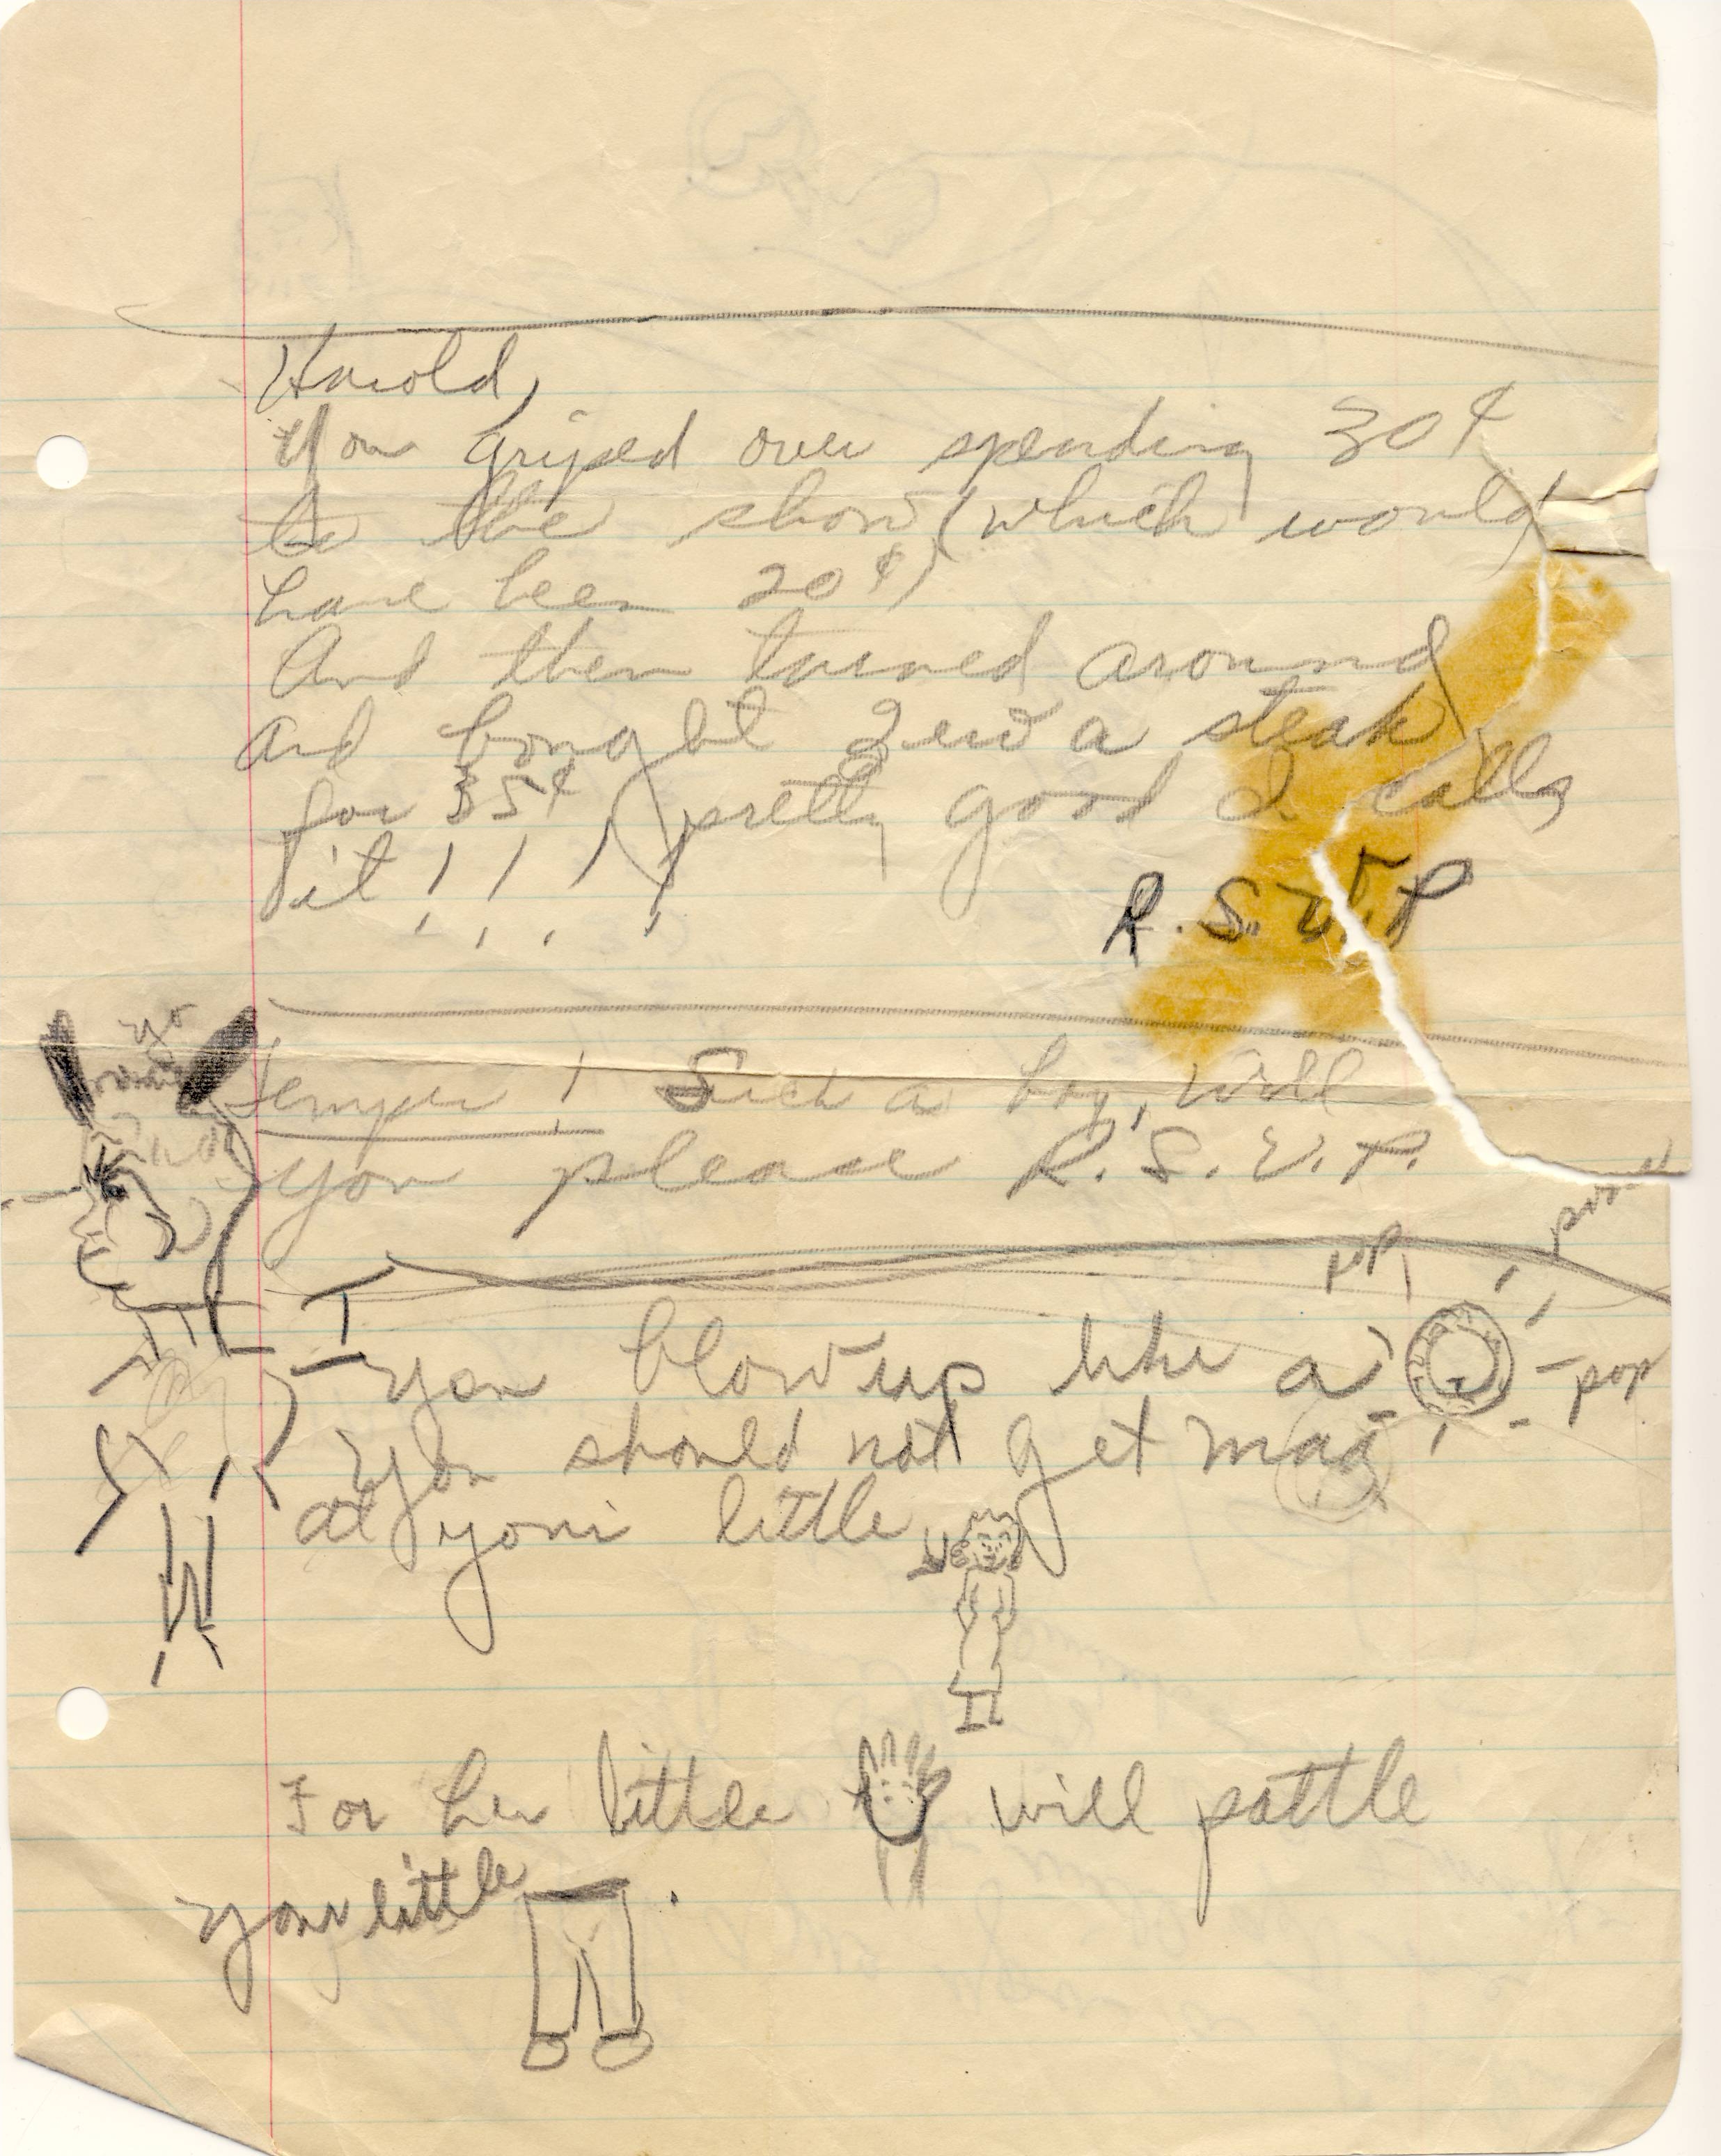 Harold,
You griped over spending 30¢
to the show (which would
have been 20¢)
And then turned around
and bought a steak
for 35¢ (pretty good I calls
it!!!)
R.S.V.P
Temper! Such a boy, will
you please R.S.V.P.
pop
You blow up like a
pop
You should not get mad
at your little
For her little will pattle
your little .